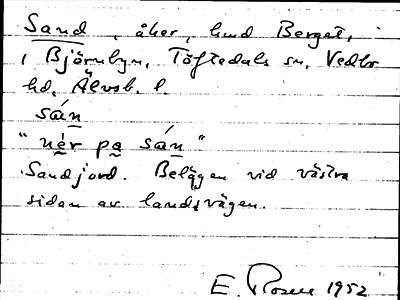 Sand, åker, hmd Berget,
i Björnbyn, Töftedals sn, Vedbo
hd, Älvsb. l.
sán
"nér pa sán"
Sandjord. Belägen vid västra
sidan av landsvägen.
E. Rosen 1952